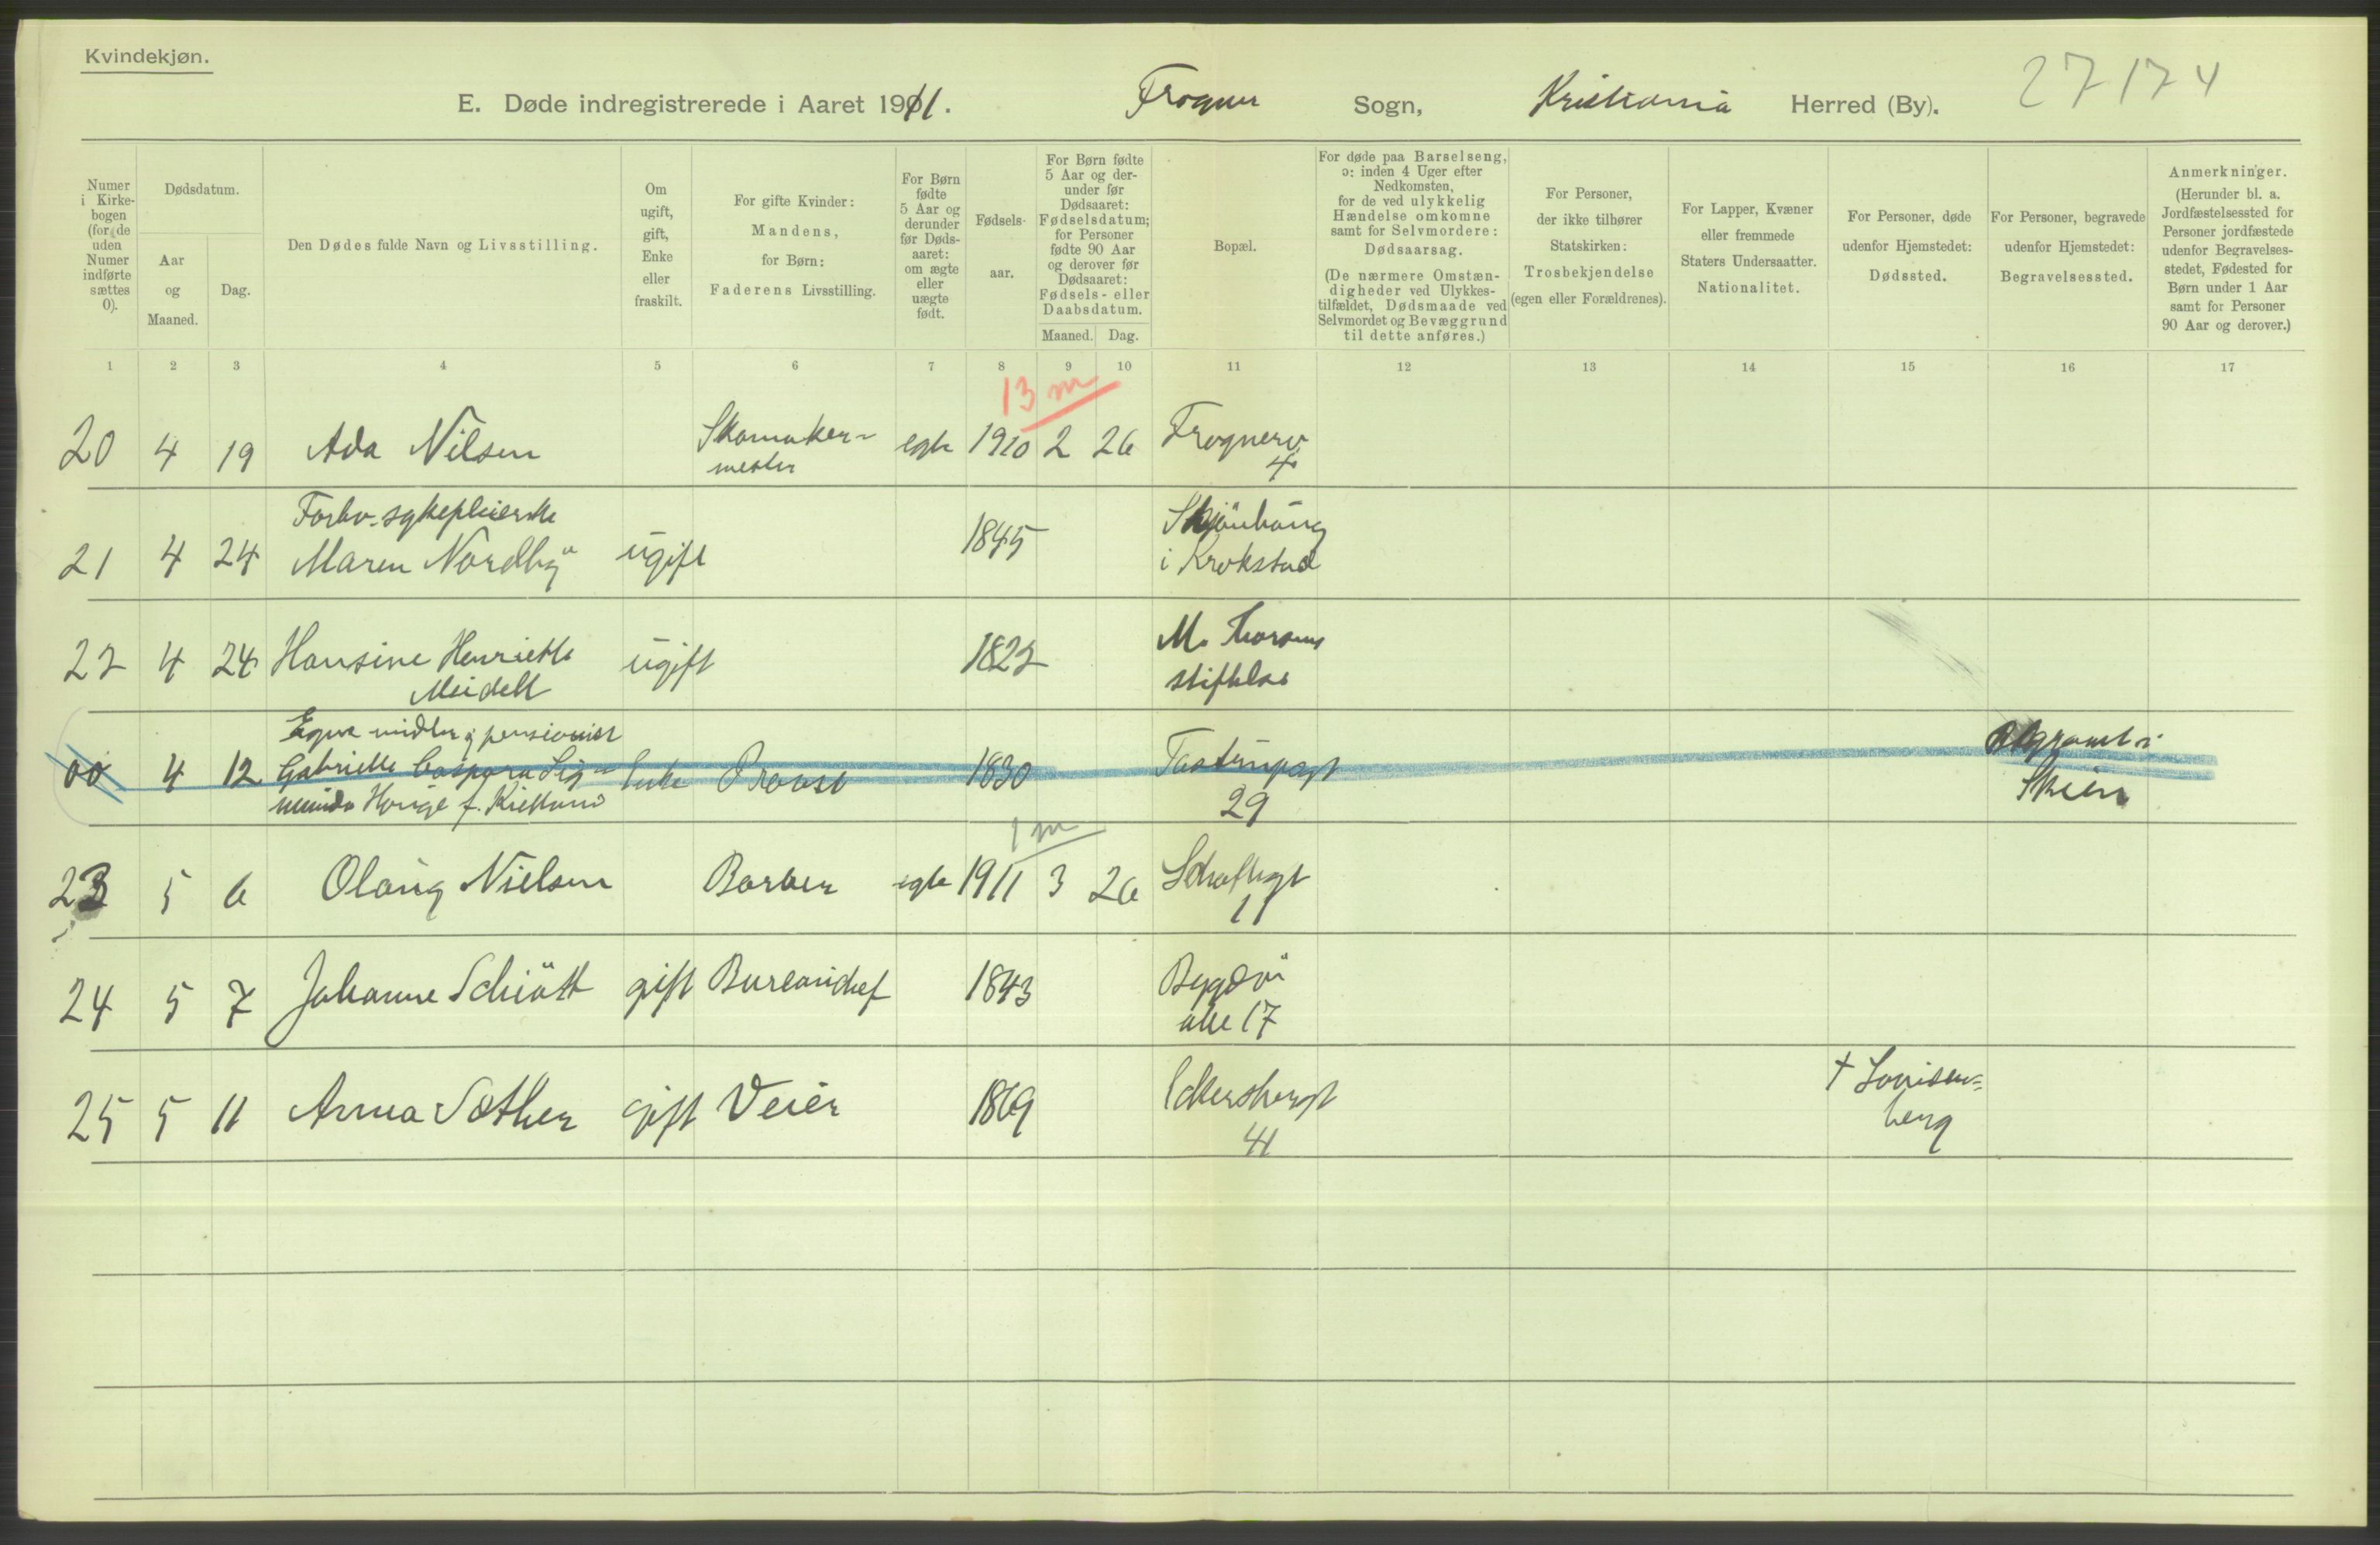 Kvindekjøn.
E. Døde indregistrerede i Aaret 1911. Frogner Sogn, Kristiania Herred (By). 27174
Numer i Kirkebogen (for de uden Numer indførte sættes 0).
Dødsdatum.
Aar og Maaned.
Dag.
Den Dødes fulde Navn og Livsstilling.
Om ugift, gift, Enke eller fraskilt.
For gifte Kvinder: Mandens, for Børn: Faderens Livsstilling.
For Børn fødte 5 Aar og derunder før Dødsaaret: om ægte eller uægte født.
Fødselsaar.
For Børn fødte 5 Aar og derunder før Dødsaaret: Fødselsdatum; for Personer fødte 90 Aar og derover før Dødsaaret: Fødsels- eller Daabsdatum.
Maaned. Dag.
Bopæl.
For døde paa Barselseng, ɔ: inden 4 Uger efter Nedkomsten, for de ved ulykkelig Hændelse omkomne samt for Selvmordere: Dødsaarsag.
(De nærmere Omstændigheder ved Ulykkestilfældet, Dødsmaade ved Selvmordet og Bevæggrund til dette anføres.)
For Personer, der ikke tilhører Statskirken: Trosbekjendelse (egen eller Forældrenes).
For Lapper, Kvæner eller fremmede Staters Undersaatter. Nationalitet.
For Personer, døde udenfor Hjemstedet: Dødssted.
For Personer, begravede udenfor Hjemstedet: Begravelsessted.
Anmerkninger.
(Herunder bl. a. Jordfæstelsessted for Personer jordfæstede udenfor Begravelsesstedet, Fødested for Børn under 1 Aar samt for Personer 90 Aar og derover.)
1 2 3 4 5 6 7 8 9 10 11 12 13 14 15 16 17
13 m
20 4 19 Ada Nilsen Skomakermester egte 1910 2 26 Frognerv. 4
Forhv. sykepleierske
21 4 24 Maren Nordby ugift 1845 i Krokstad
22 4 24 Hansine Henriette Meidell ugift 1822 M. Thorsens stiftelse
Egne midler & pensionist
00 4 12 Gabrielle Caspara Sigmunda f. Kielland Enke Provst 1830 Tostrupgt 29 Begravet i Skien
1 m
23 5 6 Olaug Nielsen Barber egte 1911 3 26 11
24 5 7 Johanne Schiött gift Bureauchef 1843 Bygdö alle 17
25 5 11 Anna Sæther gift Veier 1869 Eckersbergt 41 † Lovisenberg